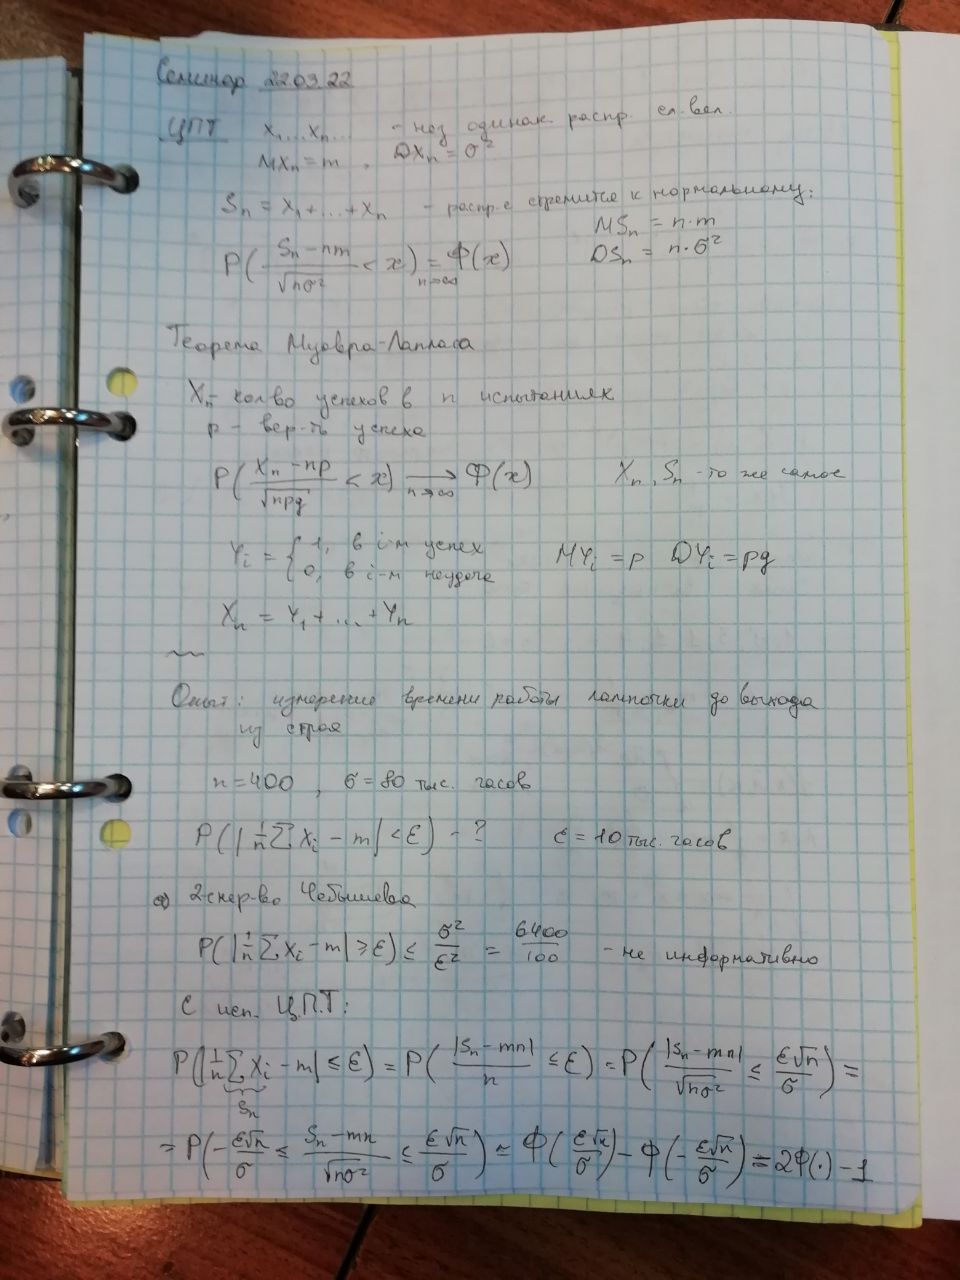 Семинар 22.03.22
ЦПТ X₁...Xₙ... – нез одинак распр. сл. вел.
MXₙ = m, DXₙ = σ²
Sₙ = X₁+...+Xₙ – распр-е стремится к нормальному:
MSₙ = n·m
P( (Sₙ – nm)/√(nσ²) < x ) =_{n→∞} Φ(x) DSₙ = n·σ²
Теорема Муавра-Лапласа
Xₙ – кол-во успехов в n испытаниях
p – вер-ть успеха
P( (Xₙ – np)/√(npq) < x ) →_{n→∞} Φ(x) Xₙ, Sₙ – то же самое
Yᵢ = { 1, в i-м успех
0, в i-м неудача MYᵢ = p DYᵢ = pq
Xₙ = Y₁ + ... + Yₙ
~
Опыт: измерение времени работы лампочки до выхода
из строя
n = 400, σ = 80 тыс. часов
P( | 1/n ΣXᵢ – m | < ε ) – ? ε = 10 тыс. часов
2-е нер-во Чебышева
P( | 1/n ΣXᵢ – m | ≥ ε ) ≤ σ²/ε² = 6400/100 – не информативно
С исп. Ц.П.Т:
P( | 1/n ΣXᵢ – m | ≤ ε ) = P( |Sₙ – mn|/n ≤ ε ) = P( |Sₙ – mn|/√(nσ²) ≤ ε√n/σ ) =
Sₙ
= P( –ε√n/σ ≤ (Sₙ – mn)/√(nσ²) ≤ ε√n/σ ) ≈ Φ( ε√n/σ ) – Φ( –ε√n/σ ) = 2Φ(·) – 1